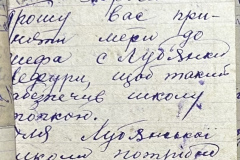 прошу вас при-
няти мери до
шефа с. Лубянки
щоб такий
забезпечив школу

для Лубянської
школи потрібно